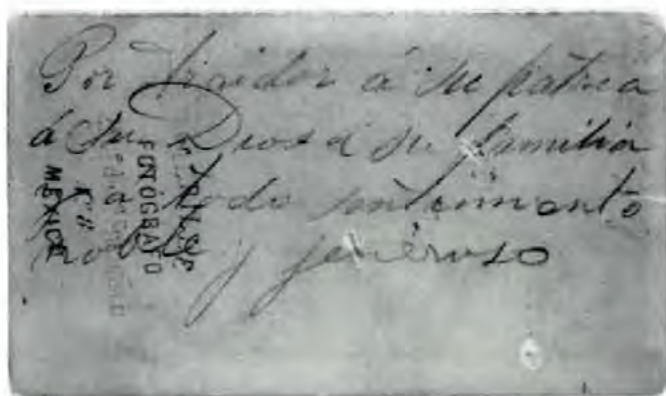 Por traidor á su patria
á su Dios á su familia
y á todo sentimiento
noble y jeneroso
FOTÓGRAFO
MÉXICO